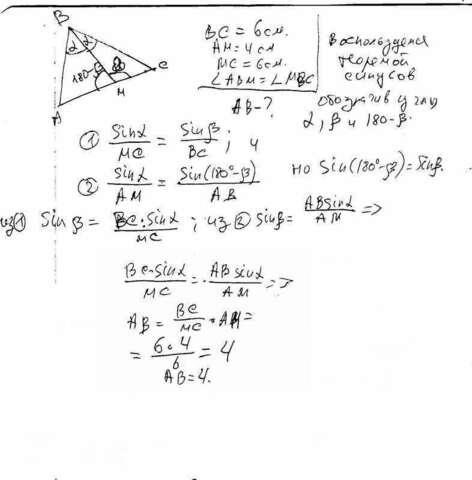 B
α α
180-β β
C
M
A
BC = 6 см.
AM = 4 см
MC = 6 см.
∠ABM = ∠MBC
AB - ?
Воспользуемся
теоремой
синусов
обозначив углы
α, β и 180-β.
① Sinα/MC = Sinβ/BC ; и
② Sinα/AM = Sin(180°-β)/AB но Sin(180°-β) = Sinβ.
из① Sinβ = BC·Sinα/MC ; из ② Sinβ = ABsinα/AM =>
BC·Sinα/MC = ABsinα/AM =>
AB = BC/MC · AM =
= 6·4/6 = 4
AB = 4.